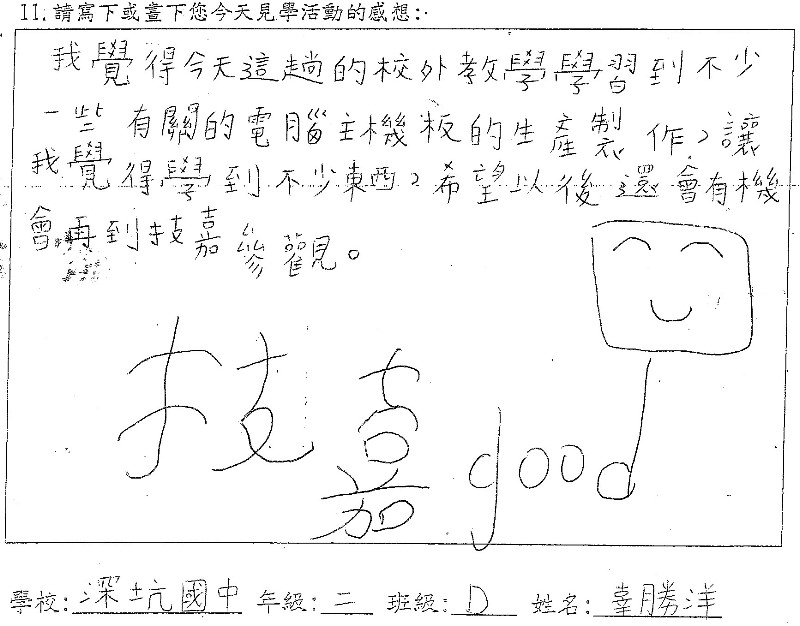 11.請寫下或畫下您今天見學活動的感想:
我覺得今天這趟的校外教學學習到不少
一些有關的電腦主機板的生產製作,讓
我覺得學到不少東西,希望以後還會有機
會再到技嘉參觀。
技嘉 good
學校:深坑國中 年級:二 班級:D 姓名:辜勝洋